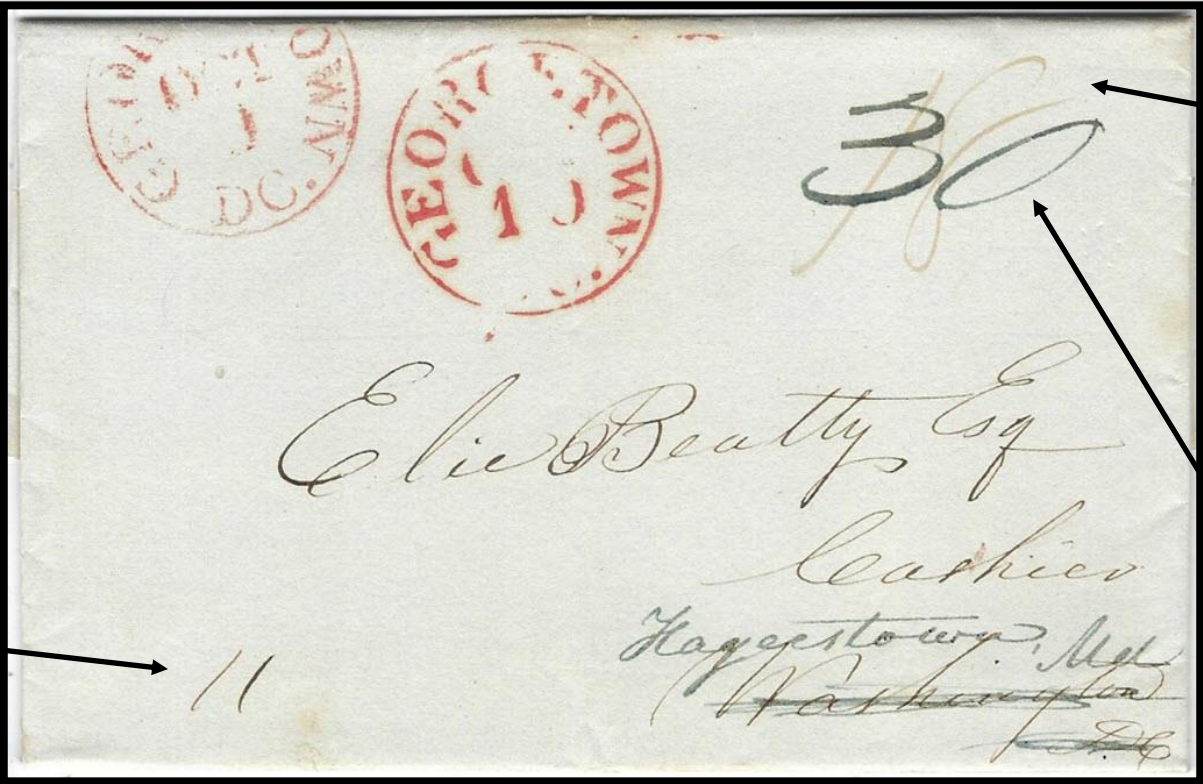 OCT
1
DC.
GEORGETOWN
10
30
Elie Beatty Esq
Cashier
Hagerstown, Md
Washington
D.C
11